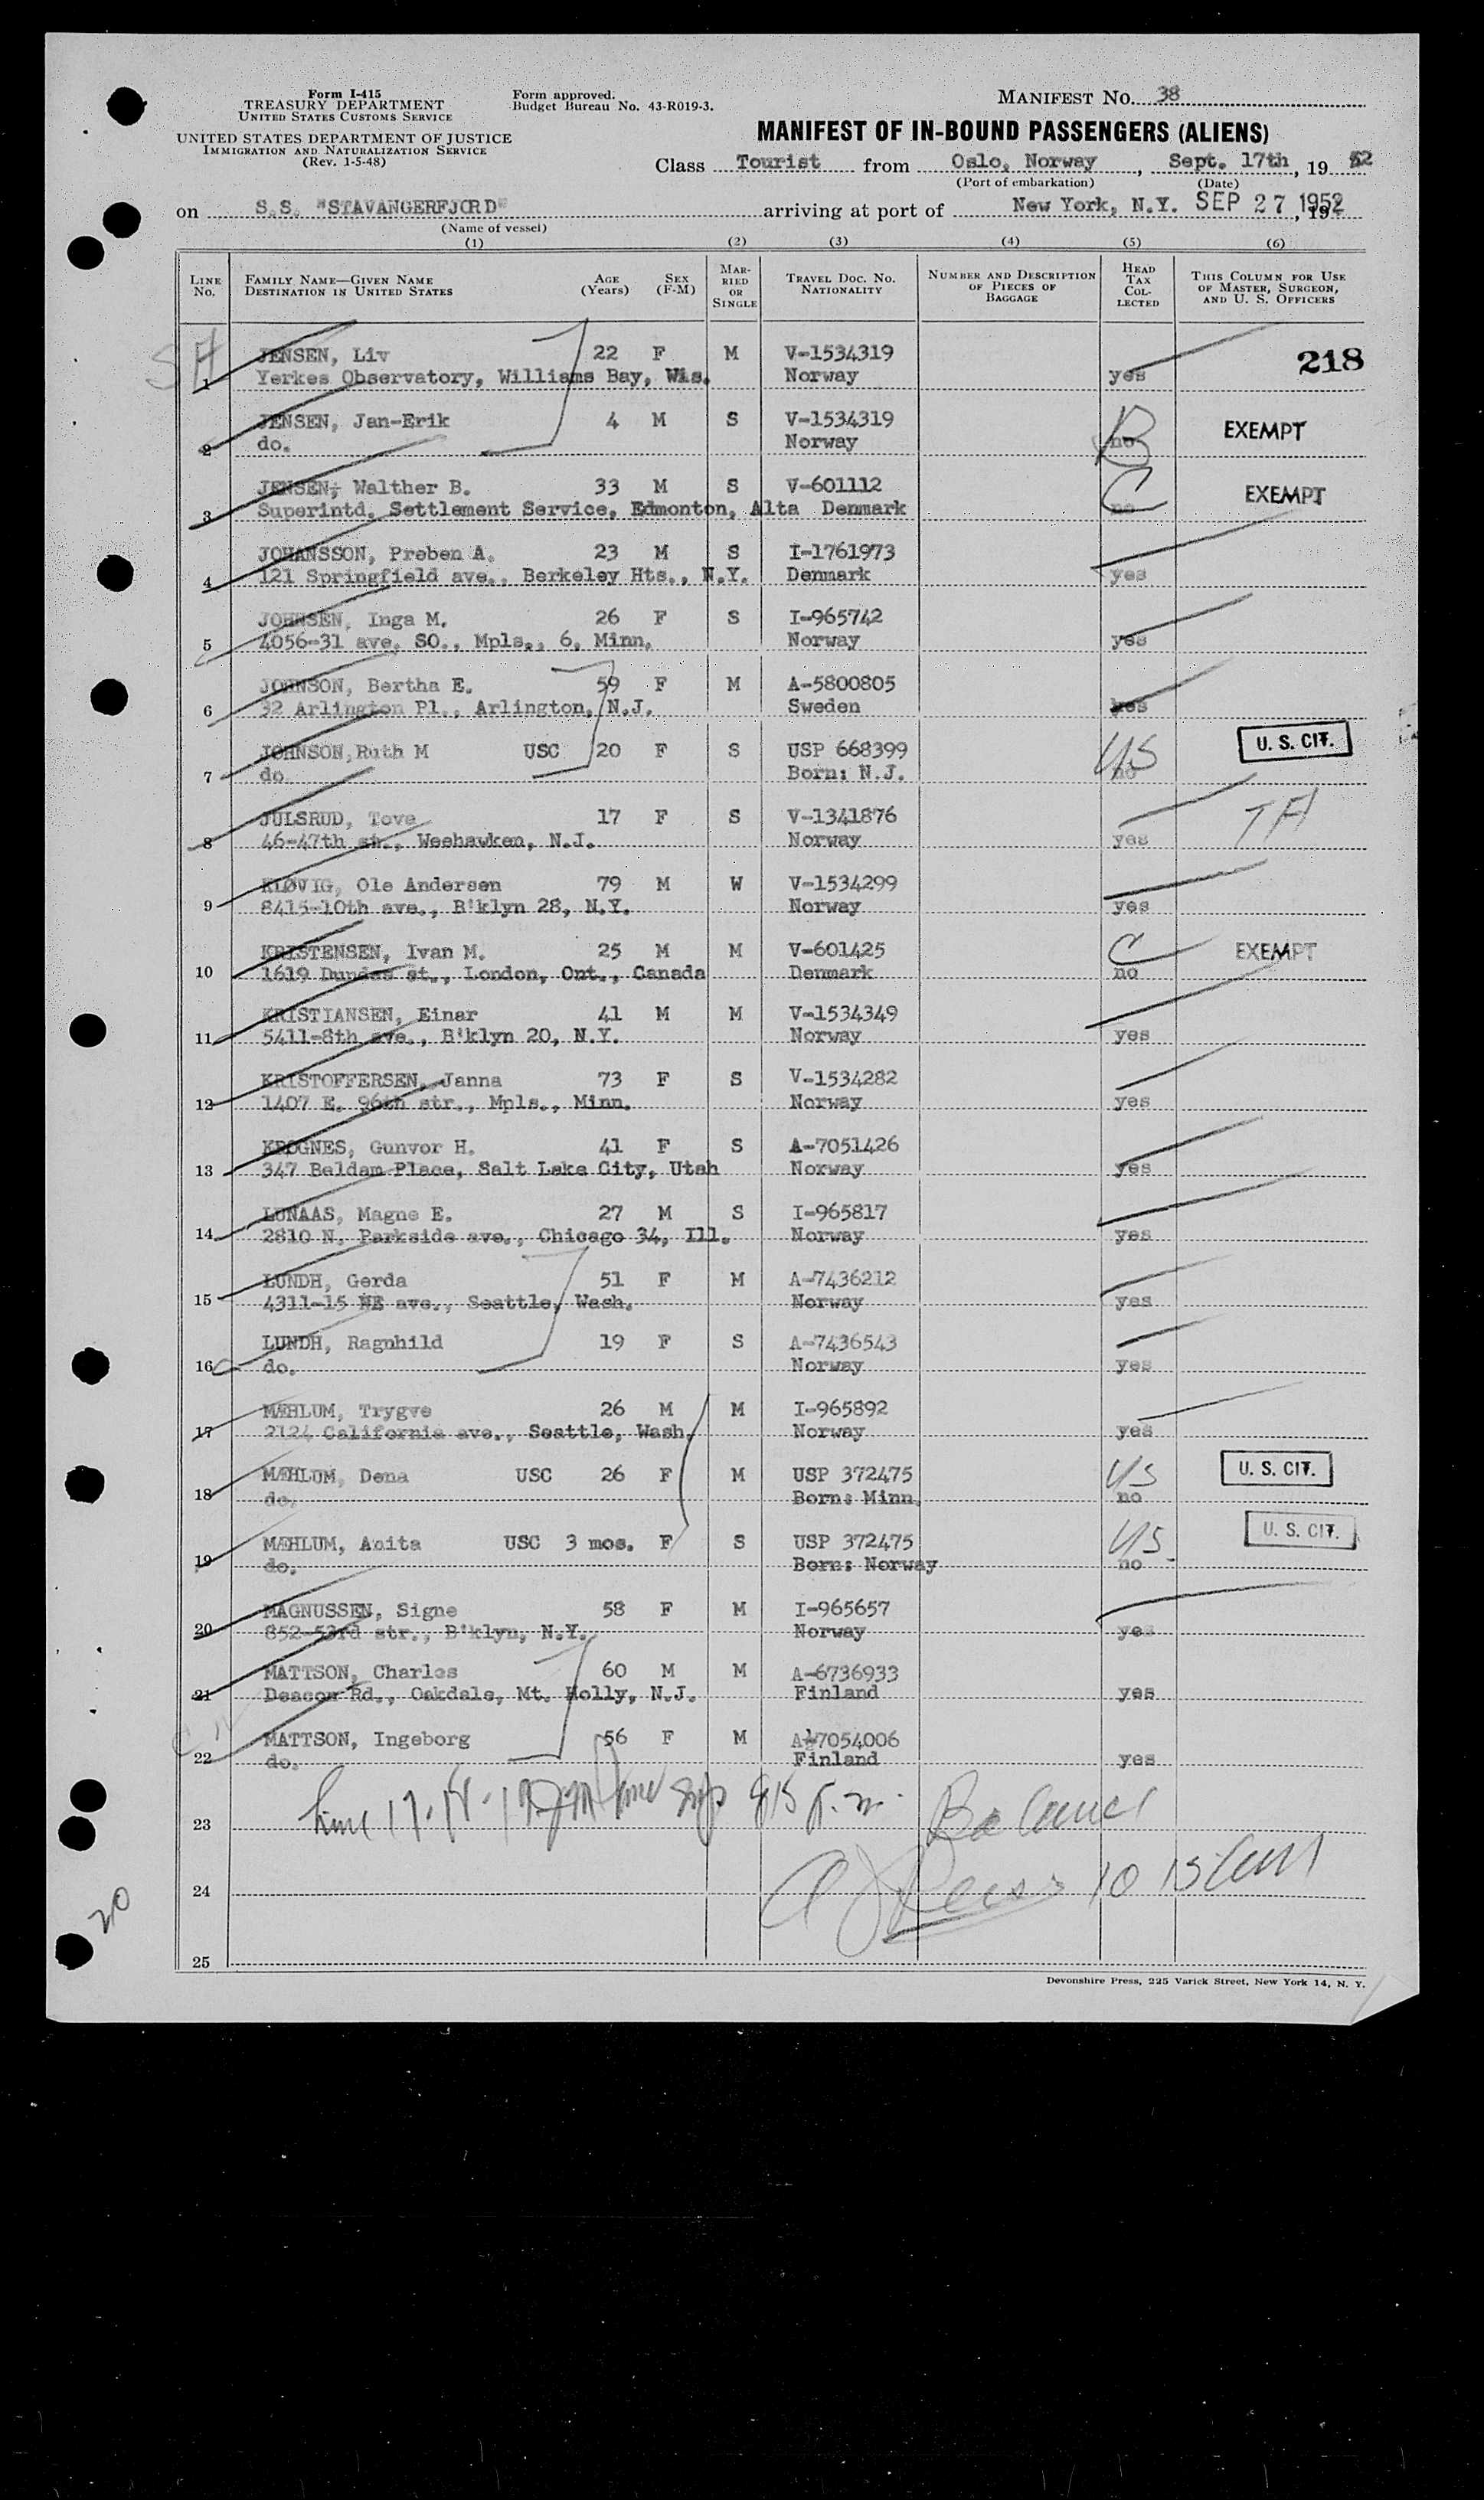 Form I-415
TREASURY DEPARTMENT
UNITED STATES CUSTOMS SERVICE
UNITED STATES DEPARTMENT OF JUSTICE
IMMIGRATION AND NATURALIZATION SERVICE
(Rev. 1-5-48)
Form approved.
Budget Bureau No. 43-R019-3.
MANIFEST No. 38
MANIFEST OF IN-BOUND PASSENGERS (ALIENS)
Class Tourist from Oslo, Norway, Sept. 17th, 19 52
(Port of embarkation) (Date)
on S.S. "STAVANGERFJORD" arriving at port of New York, N.Y. SEP 27 1952
(Name of vessel)
(1) (2) (3) (4) (5) (6)
LINE No. FAMILY NAME—GIVEN NAME DESTINATION IN UNITED STATES AGE (Years) SEX (F-M) MARRIED OR SINGLE TRAVEL DOC. NO. NATIONALITY NUMBER AND DESCRIPTION OF PIECES OF BAGGAGE HEAD TAX COLLECTED THIS COLUMN FOR USE OF MASTER, SURGEON, AND U. S. OFFICERS
SA
JENSEN, Liv 22 F M V-1534319 218
1 Yerkes Observatory, Williams Bay, Wis. Norway yes
JENSEN, Jan-Erik 4 M S V-1534319 B EXEMPT
2 do. Norway no
JENSEN, Walther B. 33 M S V-601112 C EXEMPT
3 Superintd. Settlement Service, Edmonton, Alta Denmark no
JOHANSSON, Preben A. 23 M S I-1761973
4 121 Springfield ave., Berkeley Hts., N.Y. Denmark yes
JOHNSEN, Inga M. 26 F S I-965742
5 4056-31 ave. SO., Mpls., 6, Minn. Norway yes
JOHNSON, Bertha E. 59 F M A-5800805
6 32 Arlington Pl., Arlington, N.J. Sweden yes
JOHNSON,Ruth M USC 20 F S USP 668399 US U. S. CIT.
7 do. Born: N.J. no
JULSRUD, Tove 17 F S V-1341876 TA
8 46-47th st., Weehawken, N.J. Norway yes
KLØVIG, Ole Andersen 79 M W V-1534299
9 8415-10th ave., B'klyn 28, N.Y. Norway yes
KRISTENSEN, Ivan M. 25 M M V-601425 C EXEMPT
10 1619 Dundas st., London, Ont., Canada Denmark no
KRISTIANSEN, Einar 41 M M V-1534349
11 5411-8th ave., B'klyn 20, N.Y. Norway yes
KRISTOFFERSEN, Janna 73 F S V-1534282
12 1407 E. 96th str., Mpls., Minn. Norway yes
KROGNES, Gunvor H. 41 F S A-7051426
13 347 Beldam Place, Salt Lake City, Utah Norway yes
LUNAAS, Magne E. 27 M S I-965817
14 2810 N. Parkside ave., Chicago 34, Ill. Norway yes
LUNDH, Gerda 51 F M A-7436212
15 4311-15 NE ave., Seattle, Wash. Norway yes
LUNDH, Ragnhild 19 F S A-7436543
16 do. Norway yes
MÆHLUM, Trygve 26 M M I-965892
17 2124 California ave., Seattle, Wash. Norway yes
MÆHLUM, Dena USC 26 F M USP 372475 US U. S. CIT.
18 do. Born: Minn. no
MÆHLUM, Anita USC 3 mos. F S USP 372475 US U. S. CIT.
19 do. Born: Norway no
MAGNUSSEN, Signe 58 F M I-965657
20 852-53rd str., B'klyn, N.Y. Norway yes
MATTSON, Charles 60 M M A-6736933
21 Deacon Rd., Oakdale, Mt. Holly, N.J. Finland yes
MATTSON, Ingeborg 56 F M A-7054006
22 do. Finland yes
23 line 17-18-19 815 p.m. Balance
24 10 15 am
20
25
Devonshire Press, 225 Varick Street, New York 14, N. Y.